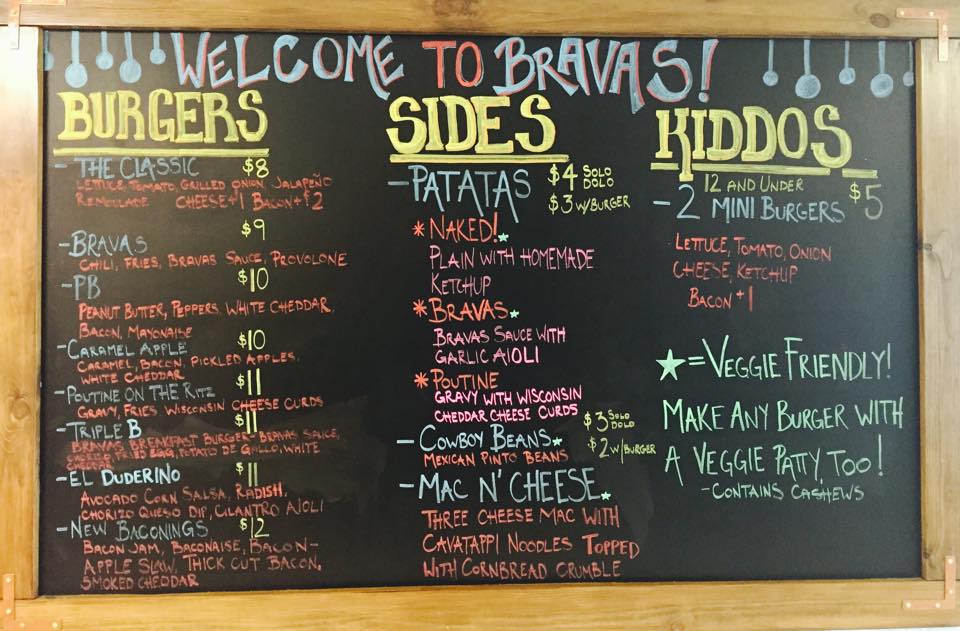 WELCOME TO BRAVAS!
BURGERS
- THE CLASSIC $8
LETTUCE, TOMATO, GRILLED ONION JALAPEÑO
REMOULADE CHEESE+1 BACON+$2
- BRAVAS $9
CHILI, FRIES, BRAVAS SAUCE, PROVOLONE
- PB $10
PEANUT BUTTER, PEPPERS, WHITE CHEDDAR,
BACON, MAYONAISE
- CARAMEL APPLE $10
CARAMEL, BACON, PICKLED APPLES,
WHITE CHEDDAR
- POUTINE ON THE RITZ $11
GRAVY, FRIES WISCONSIN CHEESE CURDS
- TRIPLE B $11
BRAVAS BREAKFAST BURGER- BRAVAS SAUCE,
FRIED EGG, POTATO DE GALLO, WHITE
- EL DUDERINO $11
AVOCADO CORN SALSA, RADISH,
CHORIZO QUESO DIP, CILANTRO AIOLI
- NEW BACONINGS $12
BACON JAM, BACONAISE, BACON-
APPLE SLAW, THICK CUT BACON,
SMOKED CHEDDAR
SIDES
- PATATAS $4 SOLO DOLO
$3 W/BURGER
* NAKED!
PLAIN WITH HOMEMADE
KETCHUP
* BRAVAS
BRAVAS SAUCE WITH
GARLIC AIOLI
* POUTINE
GRAVY WITH WISCONSIN
CHEDDAR CHEESE CURDS
- COWBOY BEANS $3 SOLO DOLO
MEXICAN PINTO BEANS $2 W/BURGER
- MAC N' CHEESE
THREE CHEESE MAC WITH
CAVATAPPI NOODLES TOPPED
WITH CORNBREAD CRUMBLE
KIDDOS
12 AND UNDER
- 2 MINI BURGERS $5
LETTUCE, TOMATO, ONION
CHEESE, KETCHUP
BACON +1
★ = VEGGIE FRIENDLY!
MAKE ANY BURGER WITH
A VEGGIE PATTY, TOO!
- CONTAINS CASHEWS